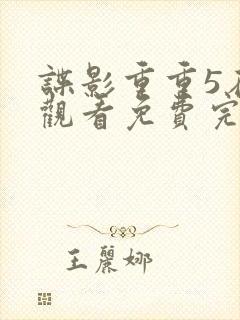 諜影重重5
觀看免費完
王麗娜